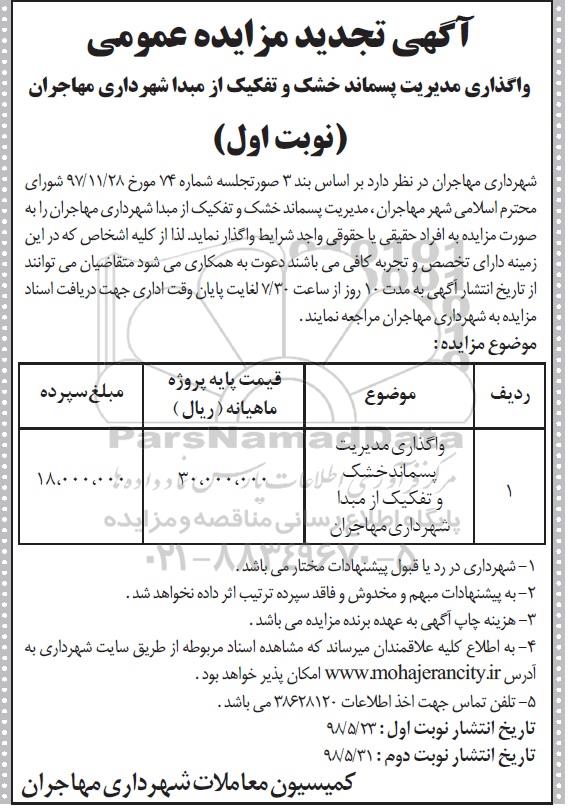 آگهی تجدید مزایده عمومی
واگذاری مدیریت پسماند خشک و تفکیک از مبدا شهرداری مهاجران
(نوبت اول)
شهرداری مهاجران در نظر دارد بر اساس بند ۳ صورتجلسه شماره ۷۴ مورخ ۹۷/۱۱/۲۸ شورای
محترم اسلامی شهر مهاجران ، مدیریت پسماند خشک و تفکیک از مبدا شهرداری مهاجران را به
صورت مزایده به افراد حقیقی یا حقوقی واجد شرایط واگذار نماید. لذا از کلیه اشخاص که در این
زمینه دارای تخصص و تجربه کافی می باشند دعوت به همکاری می شود متقاضیان می توانند
از تاریخ انتشار آگهی به مدت ۱۰ روز از ساعت ۷/۳۰ لغایت پایان وقت اداری جهت دریافت اسناد
مزایده به شهرداری مهاجران مراجعه نمایند .
موضوع مزایده :
ردیف	موضوع	قیمت پایه پروژه ماهیانه ( ریال )	مبلغ سپرده
۱	واگذاری مدیریت پسماند خشک و تفکیک از مبدا شهرداری مهاجران	۳۰،۰۰۰،۰۰۰	۱۸،۰۰۰،۰۰۰
ParsNamadData
مرکز فرآوری اطلاعات پارس نماد داده ها
پایگاه اطلاع رسانی مناقصه و مزایده
۰۲۱-۸۸۳۴۹۶۷۰-۵
۱- شهرداری در رد یا قبول پیشنهادات مختار می باشد .
۲- به پیشنهادات مبهم و مخدوش و فاقد سپرده ترتیب اثر داده نخواهد شد .
۳- هزینه چاپ آگهی به عهده برنده مزایده می باشد .
۴- به اطلاع کلیه علاقمندان میرساند که مشاهده اسناد مربوطه از طریق سایت شهرداری به
آدرس www.mohajerancity.ir امکان پذیر خواهد بود .
۵- تلفن تماس جهت اخذ اطلاعات ۳۸۶۲۸۱۲۰ می باشد .
تاریخ انتشار نوبت اول : ۹۸/۵/۲۳
تاریخ انتشار نوبت دوم : ۹۸/۵/۳۱
کمیسیون معاملات شهرداری مهاجران